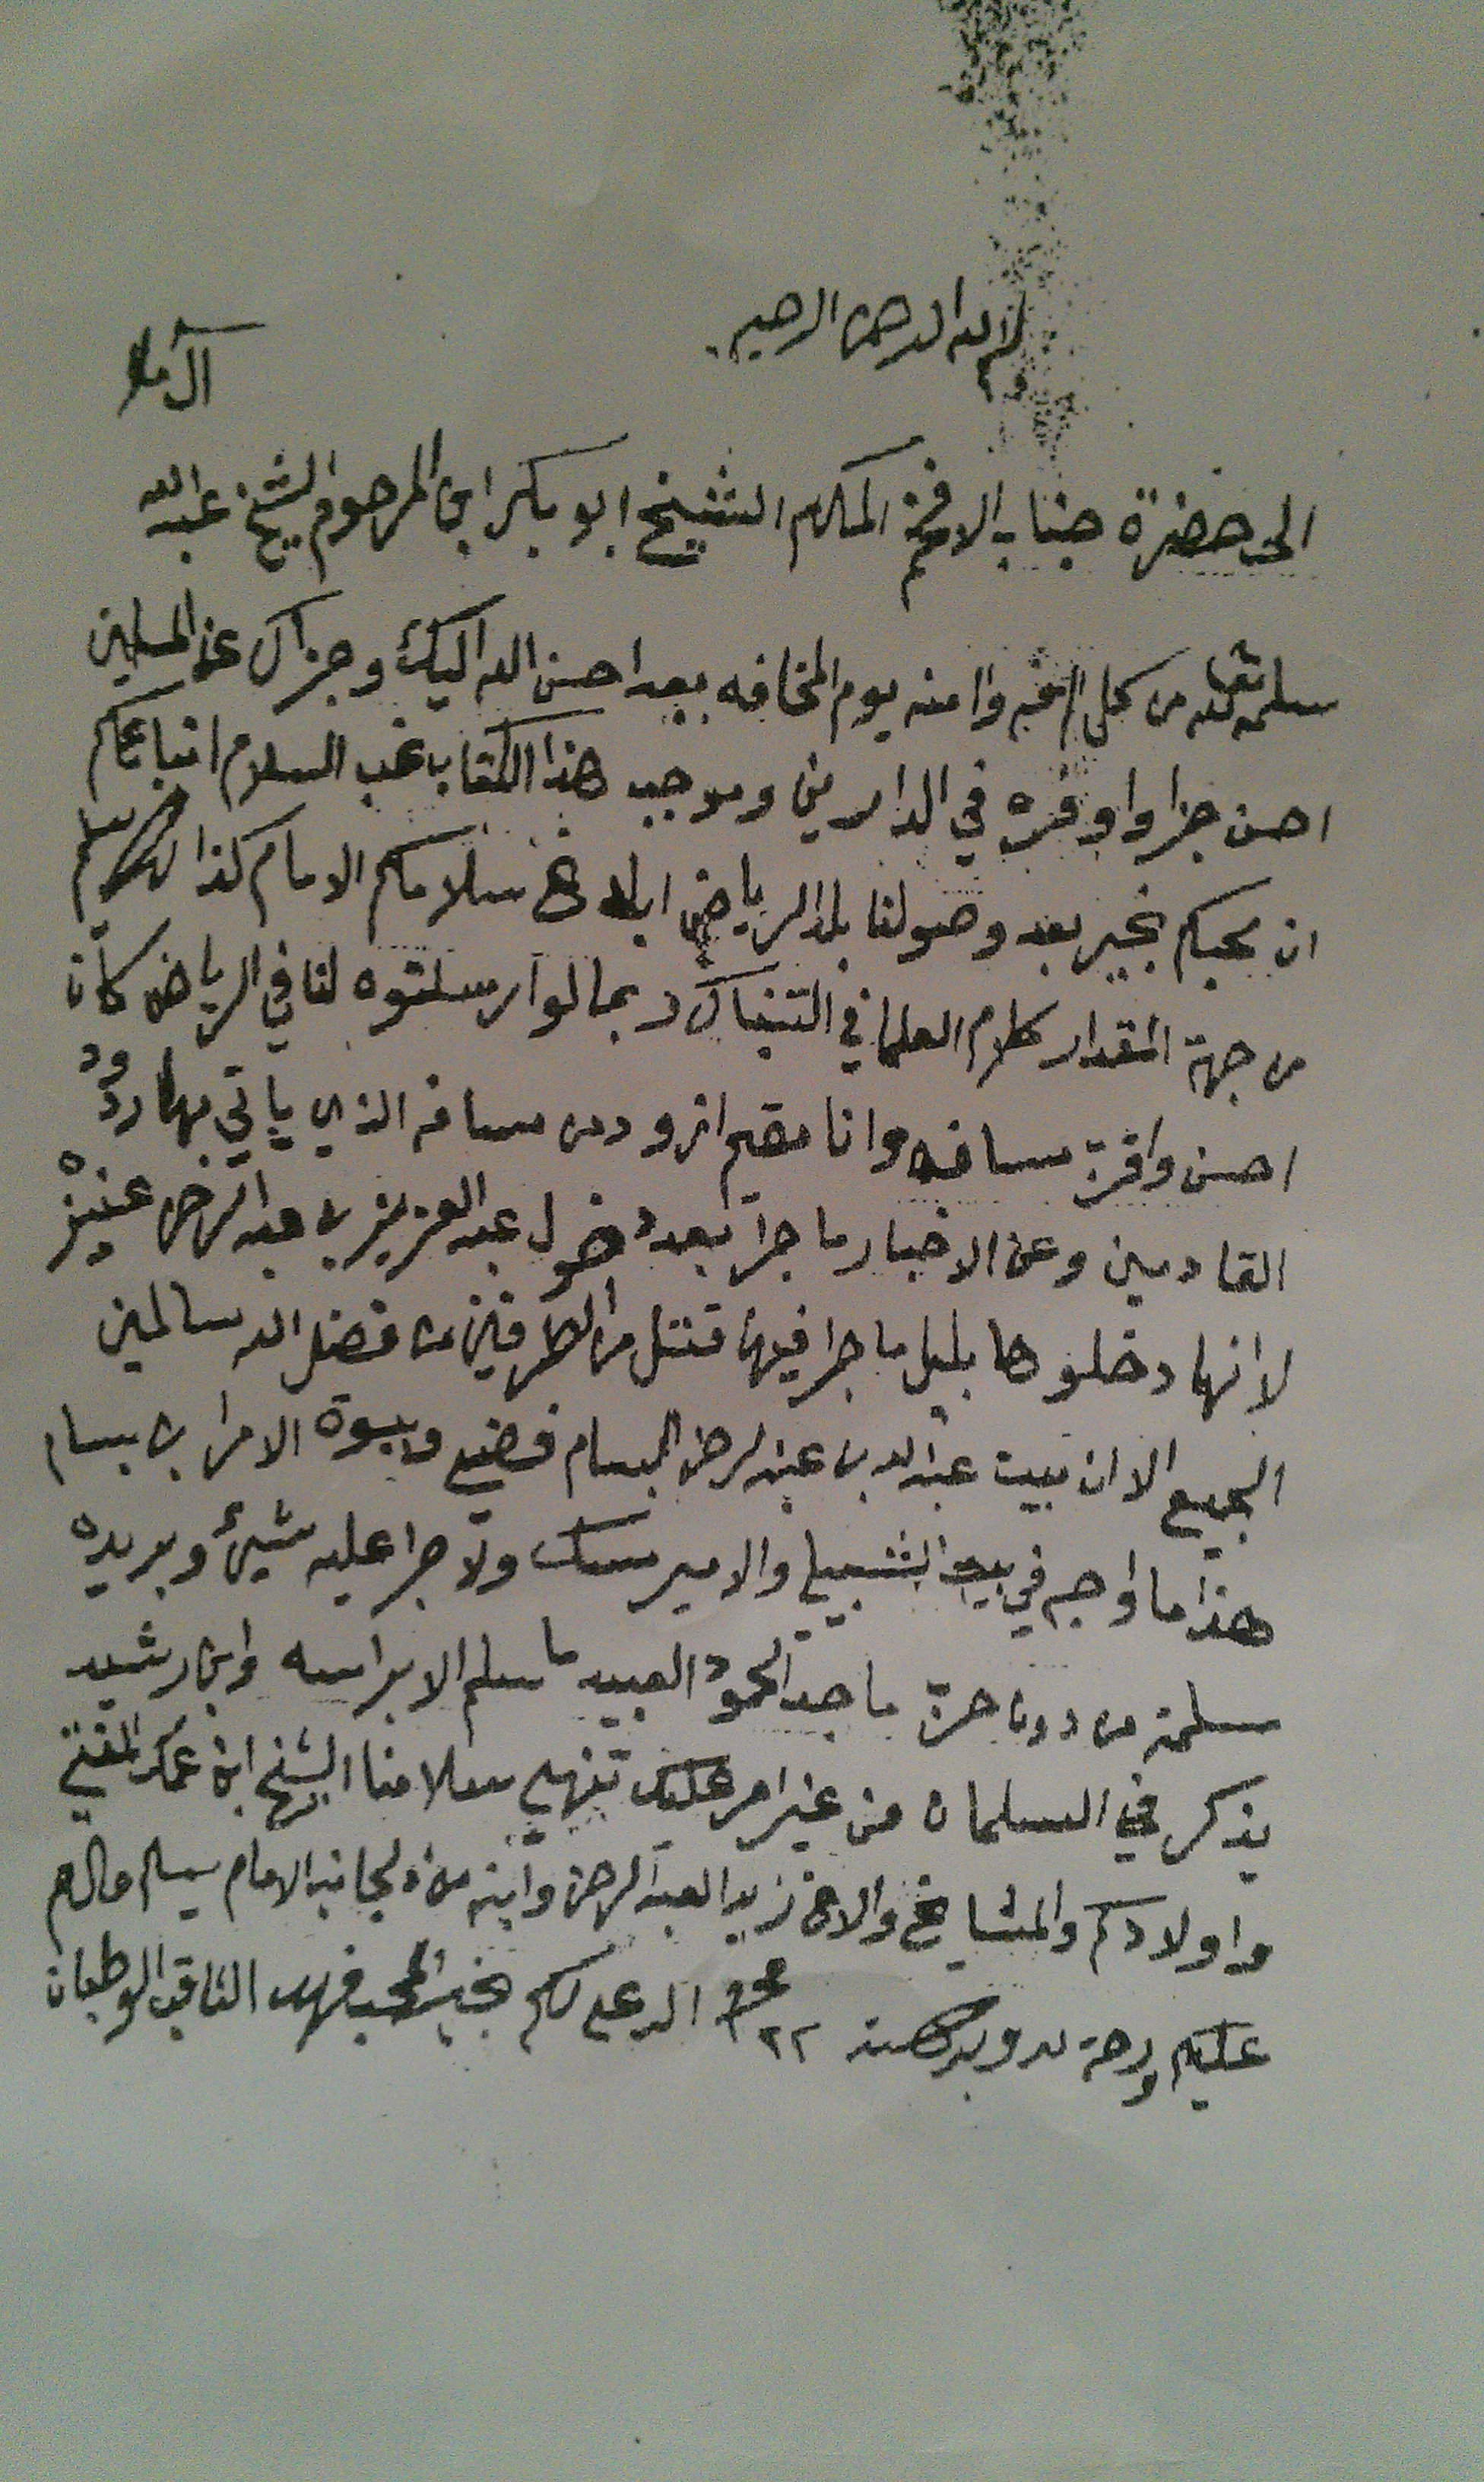 بسم الله الرحمن الرحيم
آل ملا
الى حضرة جناب الافخم المكرم الشيخ ابو بكر ابن المرحوم الشيخ عبد الله
سلمه الله تعالى من كل وامنه يوم المخافه بعد احسن الله اليك وجزاك عن المسلمين
احسن جزا واوفره في الدارين وموجب هذا الكتاب غب السلام انبائكم
ان محبكم بخير بعد وصولنا بلد الرياض ابلاغ سلامكم الامام كذالك يسلم
من جهة المقدار كلام العلما في التنباك ربما لو ارسلتوه لنا في الرياض كان
احسن واقرب مسافه وانا مقيم ازود من مسافة الذي ياتي بها ردود
القادمين وعن الاخبار ما جرا بعد دخول عبد العزيز بن عبد الرحمن عنيزه
لانها دخلوها بليل ما جرا فيها قتل من الطرفين من فضل الله سالمين
الجميع الا ان بيت عبد الله بن عبد الرحمن البسام فضيع وبيوة الامرا بن بسام
هذا ما اوجر في بيت الشبيلي والامير مسك ولا جرا عليه شيئ وبريده
سلمة من دون حرب ماجد الحمود العبيد ما سلم الا براسه وابن رشيد
يذكر في السلمان من غير امر عليك تنهي سلامنا الشيخ ابن عكر المفتي
واولادكم والمشايخ والاخ زيد العبد الرحمن وابنه من لجانب الامام يسلم
عليكم ورحمة الله وبركاته ٢٢ الداعي لكم بخير المحب فهد الثاقب الوطبان